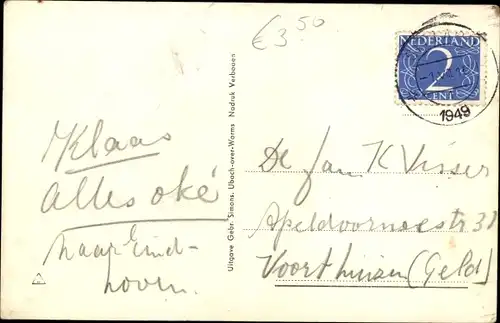 € 3.50
NEDERLAND
2
CENT
1949
Klaas
alles oké
naar Eind-
hoven.
Uitgave Gebr. Simons, Ubach-over-Worms Nadruk Verboden
De Jan K Visser
Apeldoornsestr 38
Voorthuisen (Geld)